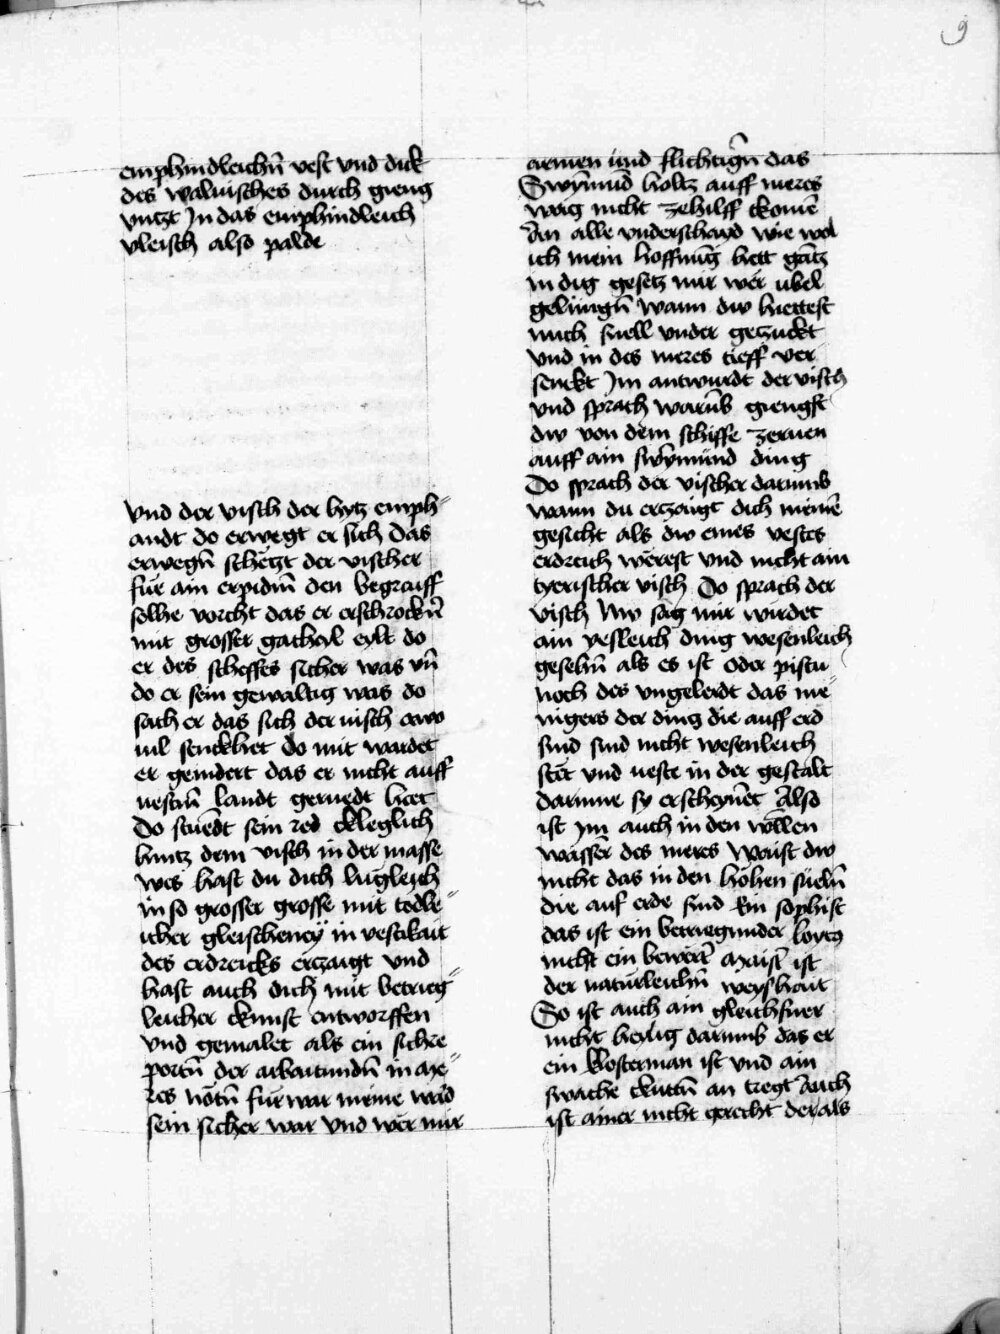 9
emphindleichn̄ vest vnd dick
des waluisches durch gieng
vntzt In das emphindleich
vleisch also palde
vnd der visch der hytz emph⸗
andt do erwegt er sich Das
erwegn̄ schetzt der vischer
für ain erpidm̄ den begraiff
solhe vorcht das er erschrockn̄
mit grosser gachayl eylt do
er des scheffes sicher was vn̄
do er sein gewaltig was do
sach er das sich der visch
senckhet do mit wardet
er geindert das er nicht auff
vestm̄ landt geruedt het
Do stuēdt sein red ckleglich
hintz dem visch in der masse
wes hast du dich lugleich
in so grosser grosse mit todle⸗
icher gleischeney in vestikait
des erdreicks ertzaigt vnd
hast auch dich mit betrieg⸗
leicher ckunst entworffen
vnd gemalet als ein sichre
portn̄ der arbaitundn̄ in me⸗
res nötn̄ fürwar meine
sein sicher war vnd wer mir
armen und flichtign̄ das
Swÿmūd holtz auff meres
wag nicht zehilff ckomē
An alle vnderschayd wie wol
ich mein hoffnūg hett gātz
in dig gesetz mir wer ubel
gelungn̄ wann dw hiettest
mich snell vnder getzuckt
vnd in des meres tieff ver
senckt Im antwurdt der visch
vnd sprach warūb giengst
dw von dem schiffe zeruen
auff ain swÿmund ding
Do sprach der vischer darumb
wann du ertzaigt dich meinē
gesicht als dw eines vestes
erdreich werest vnd nicht ain
tyerischer visch Do sprach der
visch Nw sag mir wirdet
ain yesleich ding wesenleich
gesehn̄ als es ist oder pistu
noch des vngelerdt das me⸗
nigers der ding die auff erd
sind sind nicht wesenleich
stet vnd veste in der gestalt
darinne sy erscheynet Also
ist ym auch in den wellen
wasser des meres Waist dw
nicht das in den hohen
die auf erde sind Ein sophist
das ist ein betriegunder
nicht ein beweret maister ist
der naturleichn̄ weyshait
So ist auch ain gleichsner
nicht heylig darumb das er
ein klosterman ist vnd ain
swache ckuttn̄ an tregt Auch
ist ainer nicht gerecht der als